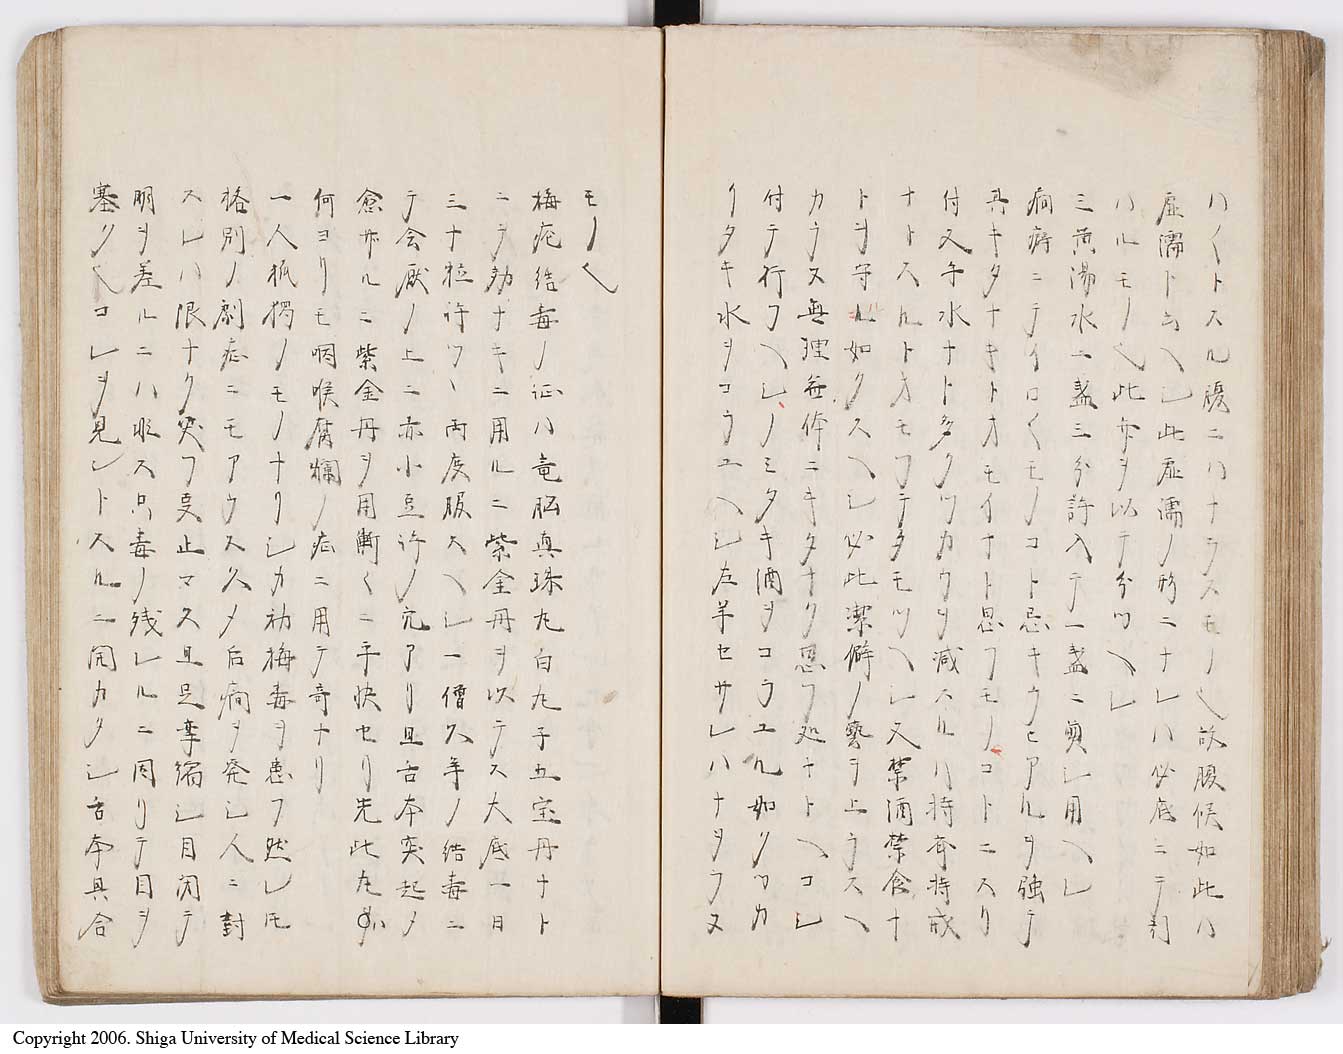 ハ〱トスル腹ニハナラスモノ也故腹候如此ハ
虚濡ト云ヘシ此虚濡ノ形ニナレハ必底ニテ引
ハルモノ也此亦ヲ以テ分ツヘシ
三黄湯水一盞三分許入テ一盞ニ煎シ用ヘシ
癇癖ニテイロ〱モノコト忌キラヒアルヲ強テ
其キタナキトオモイナト思フモノコトニスリ
付又手水ナト多クツカウヲ減スルハ持斉持戒
ナトスルトオモフテタモツヘシ又禁酒禁食ナ
トヲ守ル如クスヘシ必此潔僻ノ藝ヲ上ラスヘ
カラス無理無体ニキタナク思フ処ナトヘコシ
付テ行フヘシノミタキ酒ヲコラエル如クツカ
リタキ水ヲコラユヘシ左羊セサレハナヲラヌ
モノ也
梅瘡結毒ノ証ハ竜脳真珠丸白丸子五宝丹ナト
ニテ効ナキニ用ルニ紫金丹ヲ以テス大底一日
三十粒許ツヽ両度服スヘシ一僧久年ノ結毒ニ
テ会厭ノ上ニ赤小豆許ノ穴アリ且舌本突起メ
愈サルニ紫金丹ヲ用漸〱ニ平快セリ先此丸必
何ヨリモ咽喉腐爛ノ症ニ用テ奇ナリ
一人孤獨ノモノナリシカ初梅毒ヲ患フ然レ𪜈
格別ノ劇症ニモアラス久メ后癇ヲ発シ人ニ對
スレハ限ナク笑フ支止マス且足攣縮シ目閉テ
明ヲ差ルニハ非ス只毒ノ残レルニ因リテ目ヲ
塞ク也コレヲ見ントスルニ開カタシ舌本具合
Copyright 2006. Shiga University of Medical Science Library